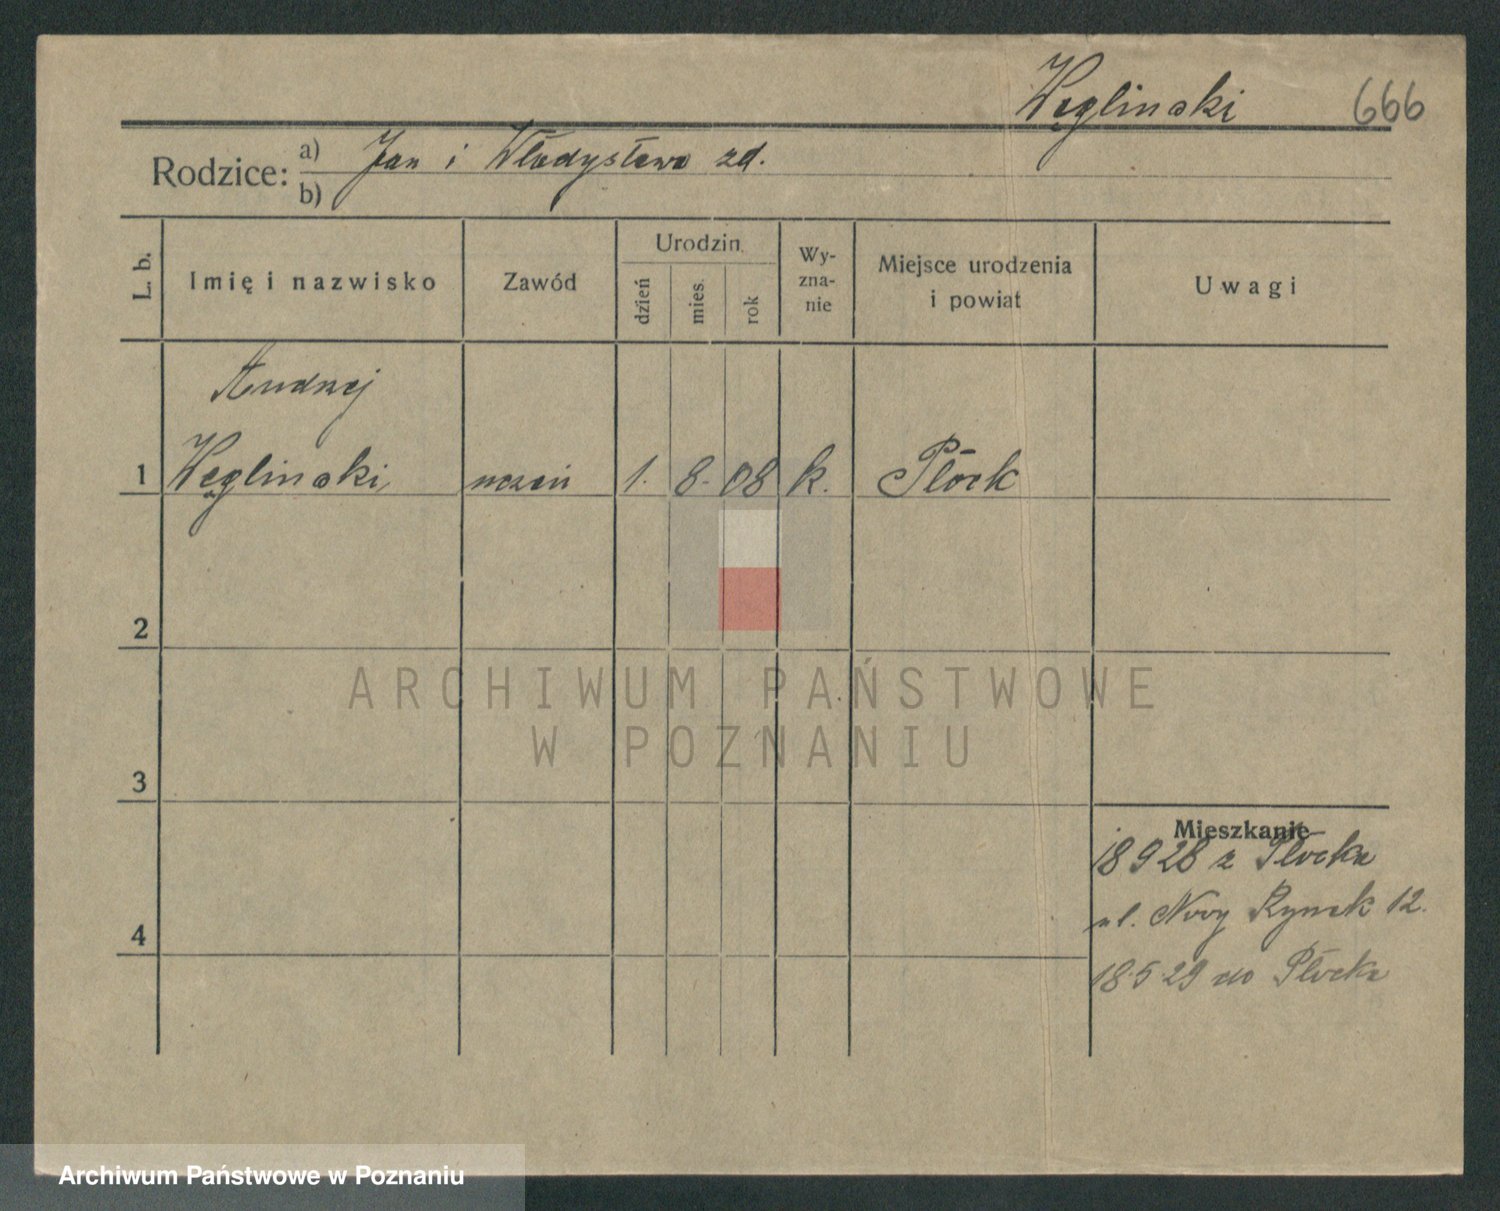 Węglinski 666
Rodzice: a) Jan i Władysława zd.
b)
L. b. Imię i nazwisko Zawód Urodzin dzień mies. rok Wy-zna-nie Miejsce urodzenia i powiat Uwagi
Andrzej
1 Węglinski uczeń 1. 8. 08 k. Płock
2
ARCHIWUM PAŃSTWOWE
W POZNANIU
3
Mieszkanie
18 9 28 z Płocka
ul. Nowy Rynek 12.
4
18.5.29 do Płocka
Archiwum Państwowe w Poznaniu